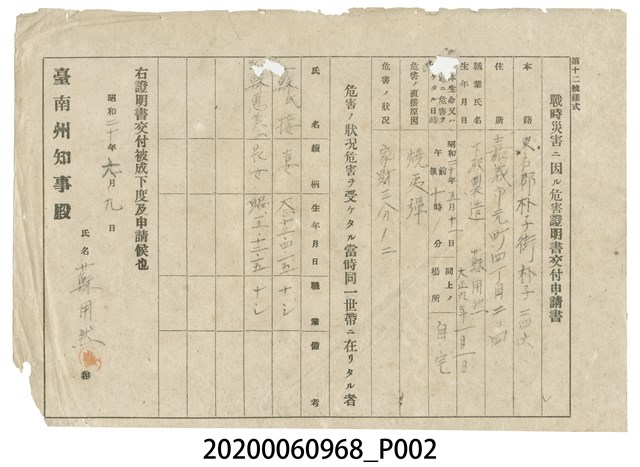 第十二號樣式
戰時災害ニ因ル危害證明書交付申請書
本籍 東石郡朴子街朴子二四六
住所 嘉義市元町四丁目二ノ四
職業氏名 下駄製造 蘇用然
生年月日 大正九年一月一日
生命又ハ 危害ヲ ケタル日時 昭和二十年五月十一日 午前後十時 分 同上ノ場所 自宅
危害ノ直接原因 燒夷彈
危害ノ狀況 家財三分ノ二
危害ノ狀況危害ヲ受ケタル當時同一世帶ニ在リタル者
氏名 續柄 生年月日 職業 備考
蘇氏 妻 大 ナシ
長女 昭 ナシ
右證明書交付被成下度及申請候也
昭和二十年六月九日
氏名 蘇用然
臺南州知事殿
20200060968_P002